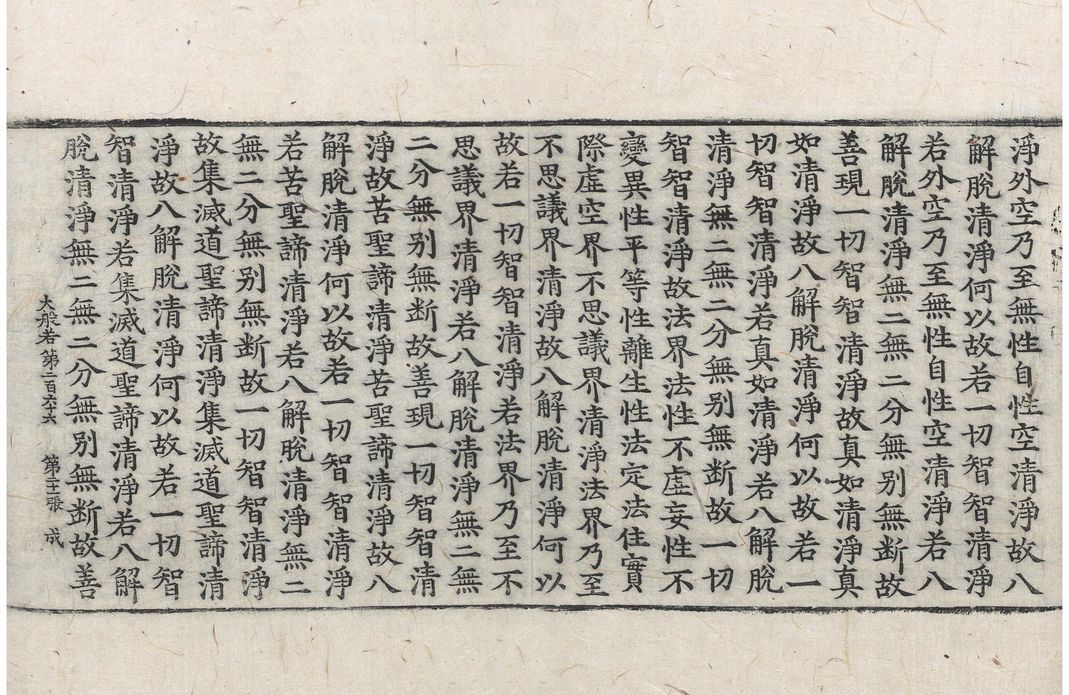 淨外空乃至無性自性空清淨故八
解脫清淨何以故若一切智智清淨
若外空乃至無性自性空清淨若八
解脫清淨無二無二分無別無斷故
善現一切智智清淨故真如清淨真
如清淨故八解脫清淨何以故若一
切智智清淨若真如清淨若八解脫
清淨無二無二分無別無斷故一切
智智清淨故法界法性不虛妄性不
變異性平等性離生性法定法住實
際虛空界不思議界清淨法界乃至
不思議界清淨故八解脫清淨何以
故若一切智智清淨若法界乃至不
思議界清淨若八解脫清淨無二無
二分無別無斷故善現一切智智清
淨故苦聖諦清淨苦聖諦清淨故八
解脫清淨何以故若一切智智清淨
若苦聖諦清淨若八解脫清淨無二
無二分無別無斷故一切智智清淨
故集滅道聖諦清淨集滅道聖諦清
淨故八解脫清淨何以故若一切智
智清淨若集滅道聖諦清淨若八解
脫清淨無二無二分無別無斷故善
大般若第二百六十六 第三張 成